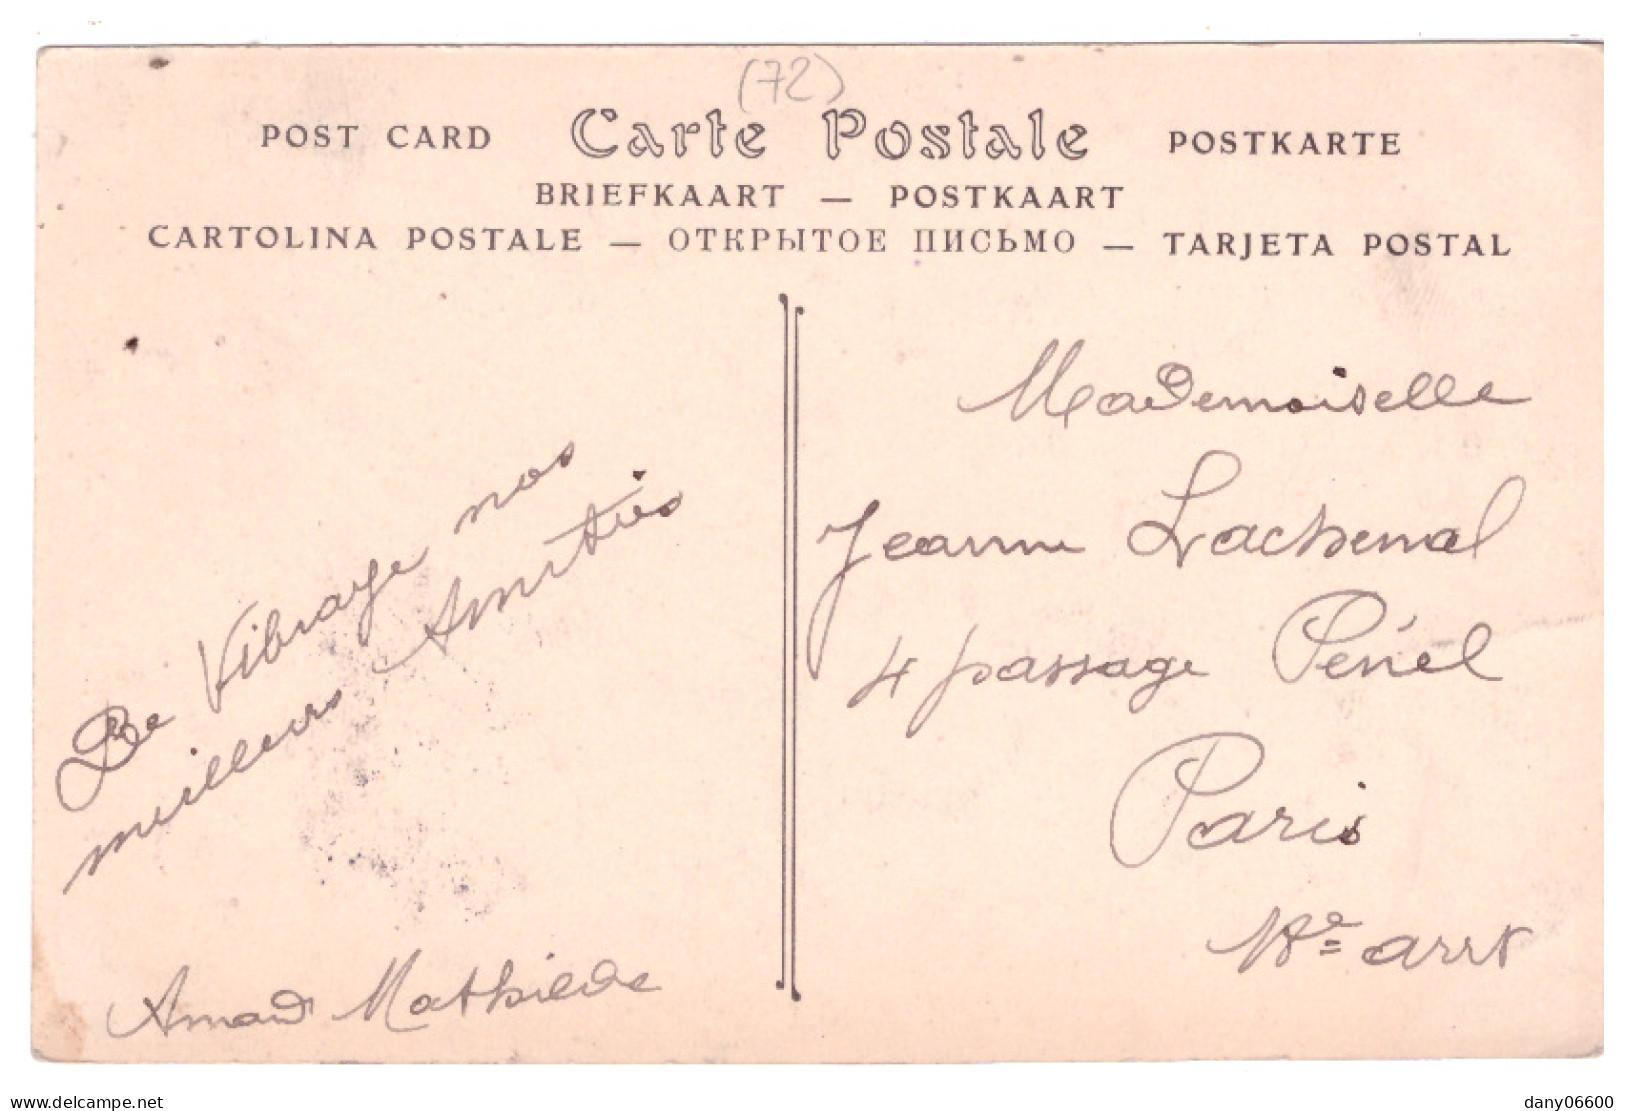 (72)
POST CARD Carte Postale POSTKARTE
BRIEFKAART — POSTKAART
CARTOLINA POSTALE — ОТКРЫТОЕ ПИСЬМО — TARJETA POSTAL
De Vibraye nos
meilleurs Amitiés
Amand Mathilde
Mademoiselle
Jeanne Lachenal
4 passage Pénel
Paris
18e arrt
www.delcampe.net
dany06600